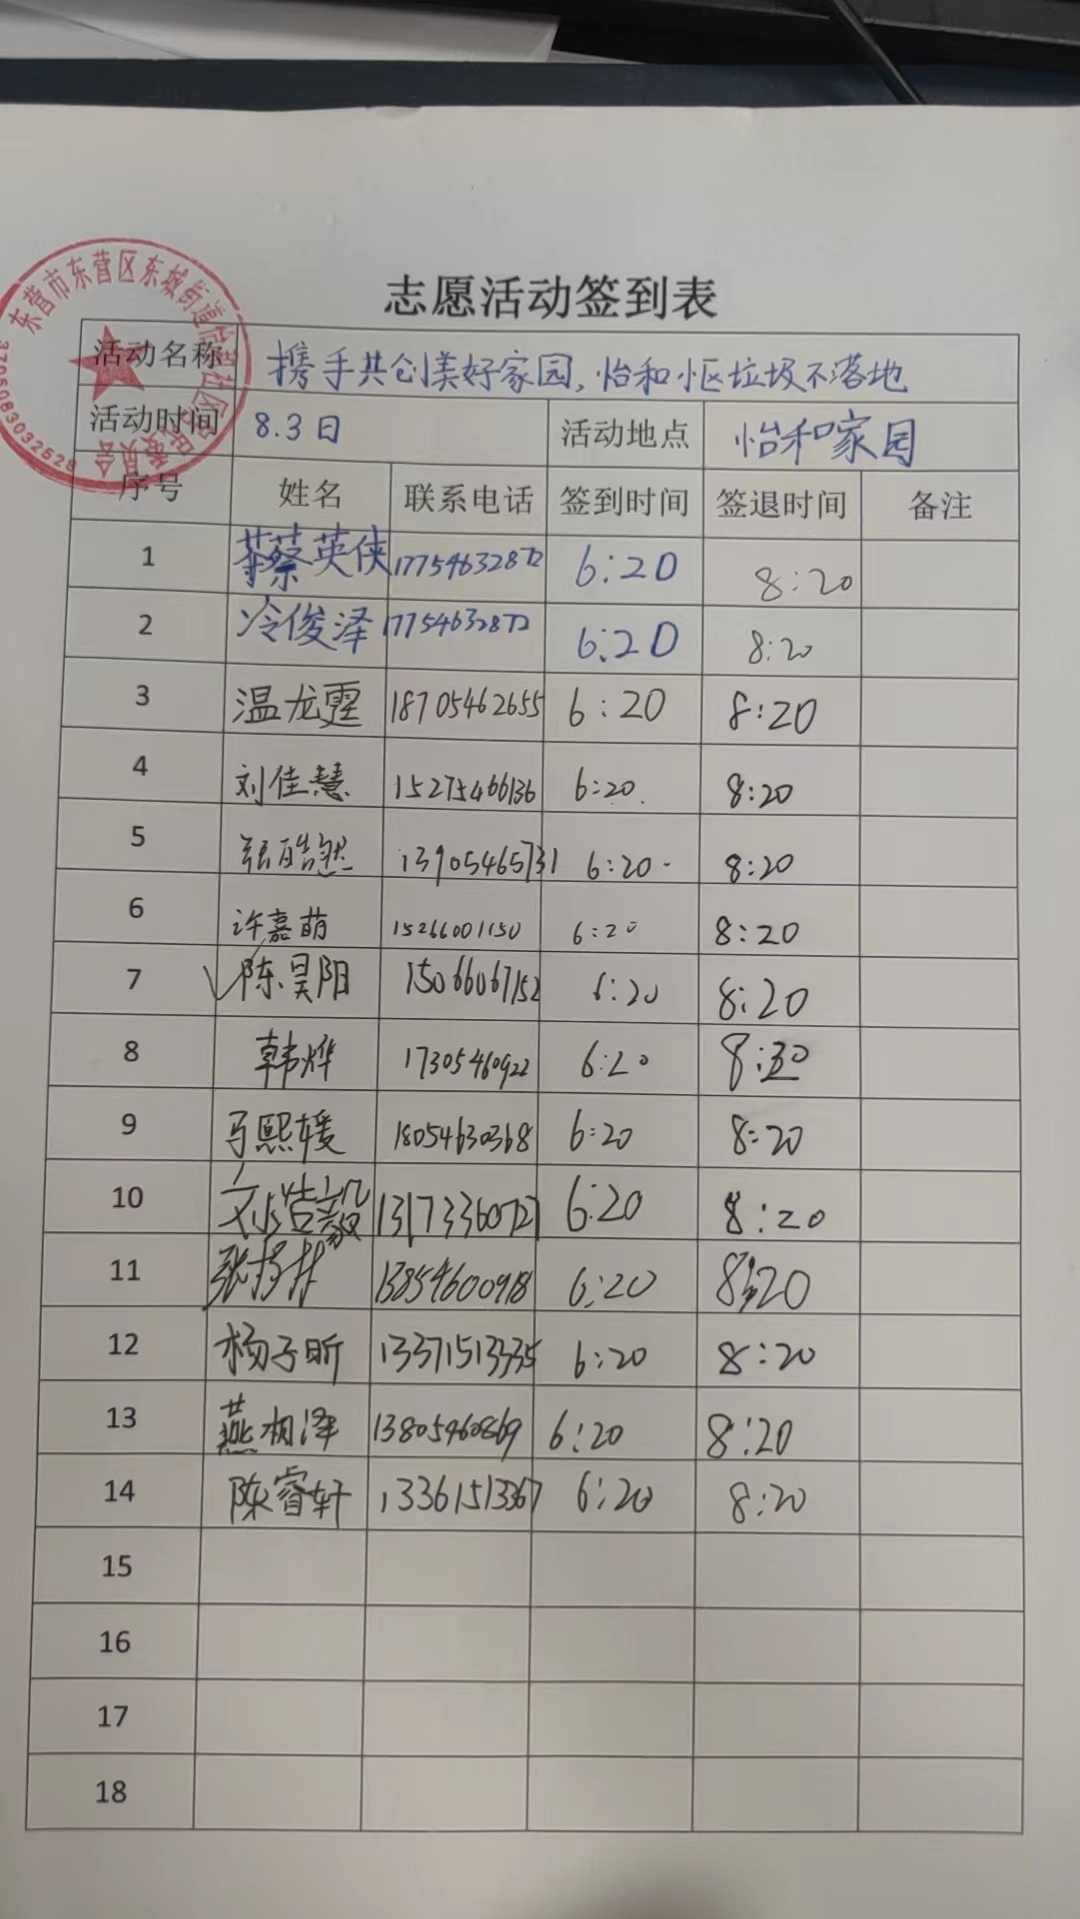 东营市东营区东城街道怡和社区居民委员会
3705083032628
志愿活动签到表
活动名称 携手共创美好家园,怡和小区垃圾不落地
活动时间 8.3日 活动地点 怡和家园
序号 姓名 联系电话 签到时间 签退时间 备注
1 蔡英侠 17754632872 6:20 8:20
2 冷俊泽 17754632872 6:20 8:20
3 温龙霆 18705462655 6:20 8:20
4 刘佳慧 15275466136 6:20 8:20
5 张皓然 13905465731 6:20 8:20
6 许嘉萌 15266001150 6:20 8:20
7 陈昊阳 15066067152 6:20 8:20
8 韩烨 17305460922 6:20 8:30
9 马熙媛 18054630368 6:20 8:20
10 刘浩毅 13173360727 6:20 8:20
11 张 13854600918 6:20 8:20
12 杨子昕 13371513335 6:20 8:20
13 燕相泽 13805460869 6:20 8:20
14 陈睿轩 13361513367 6:20 8:20
15
16
17
18